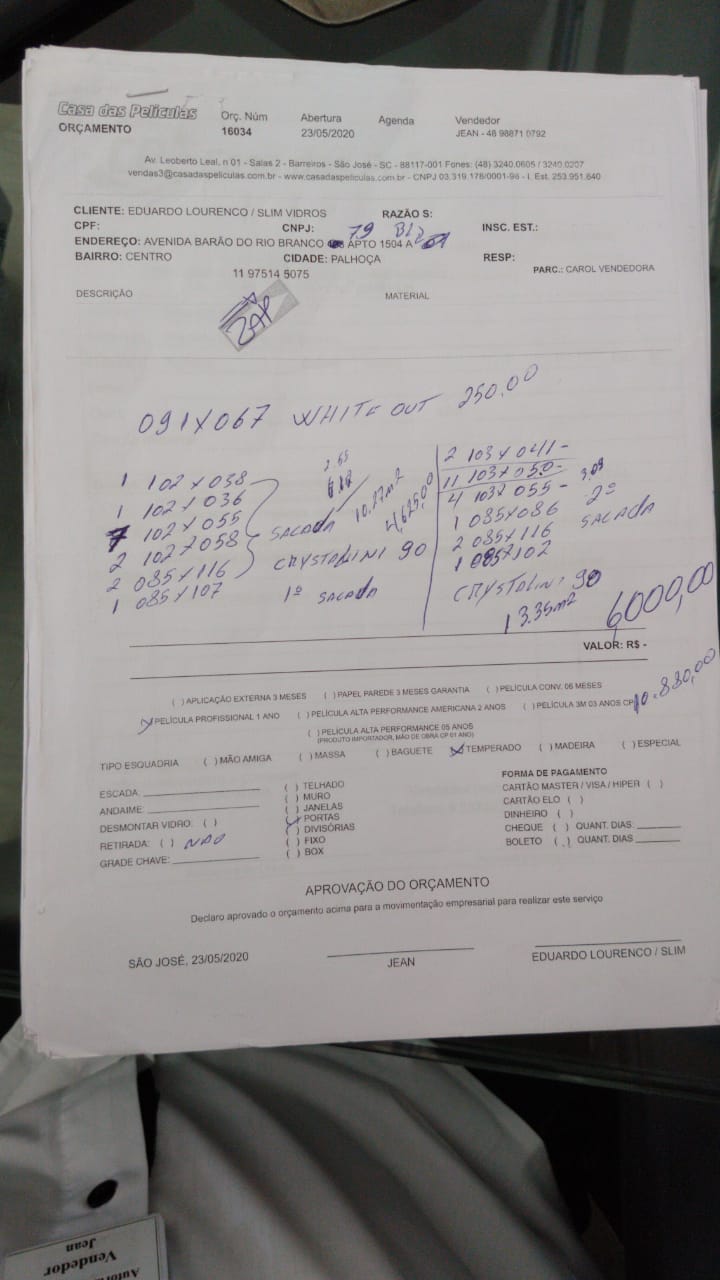 Casa das Películas
ORÇAMENTO
Orç. Núm
16034
Abertura
23/05/2020
Agenda
Vendedor
JEAN - 48 98871 0792
Av. Leoberto Leal, n 01 - Salas 2 - Barreiros - São José - SC - 88117-001 Fones: (48) 3240.0605 / 3240.0207
vendas3@casadaspeliculas.com.br - www.casadaspeliculas.com.br - CNPJ 03.319.178/0001-98 - I. Est. 253.951.640
CLIENTE: EDUARDO LOURENCO / SLIM VIDROS RAZÃO S:
CPF: CNPJ: 79 INSC. EST.:
ENDEREÇO: AVENIDA BARÃO DO RIO BRANCO APTO 1504 A
BAIRRO: CENTRO CIDADE: PALHOÇA RESP:
11 97514 5075 PARC.: CAROL VENDEDORA
DESCRIÇÃO MATERIAL
ZAP
091X067 WHITE OUT 250,00
1 102X038
1 102X036
7 102X055
2 102X058
2 085X116
1 085X107
SACADA
10.27m2
4,625,00
CRYSTALINI 90
1º SACADA
2 103X041-
11 103X050-
4 103X055-
1 085X086
2 085X116
1 085X102
2º
SACADA
CRYSTALINI 90
13.35m2
6000,00
VALOR: R$ -
10.880,00
( ) APLICAÇÃO EXTERNA 3 MESES ( ) PAPEL PAREDE 3 MESES GARANTIA ( ) PELÍCULA CONV. 06 MESES
PELÍCULA PROFISSIONAL 1 ANO ( ) PELÍCULA ALTA PERFORMANCE AMERICANA 2 ANOS ( ) PELÍCULA 3M 03 ANOS CP
( ) PELÍCULA ALTA PERFORMANCE 05 ANOS
(PRODUTO IMPORTADOR, MÃO DE OBRA CP 01 ANO)
TIPO ESQUADRIA ( ) MÃO AMIGA ( ) MASSA ( ) BAGUETE TEMPERADO ( ) MADEIRA ( ) ESPECIAL
ESCADA:
ANDAIME:
DESMONTAR VIDRO: ( )
RETIRADA: ( ) NÃO
GRADE CHAVE:
( ) TELHADO
( ) MURO
( ) JANELAS
PORTAS
( ) DIVISÓRIAS
( ) FIXO
( ) BOX
FORMA DE PAGAMENTO
CARTÃO MASTER / VISA / HIPER ( )
CARTÃO ELO ( )
DINHEIRO ( )
CHEQUE ( ) QUANT. DIAS:
BOLETO ( ) QUANT. DIAS
APROVAÇÃO DO ORÇAMENTO
Declaro aprovado o orçamento acima para a movimentação empresarial para realizar este serviço
SÃO JOSÉ, 23/05/2020
JEAN
EDUARDO LOURENCO / SLIM
Jean
Vendedor